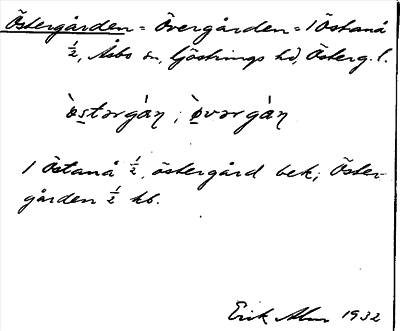 Östergården = Övergården = 1 Östanå
½, Åsbo sn, Göstrings hd, Österg. l.
òstərgàɳ ; ø̀vərgàɳ
1 Östanå ½, östergård bek; Öster-
gården ½ kb.
Erik Abm 1932